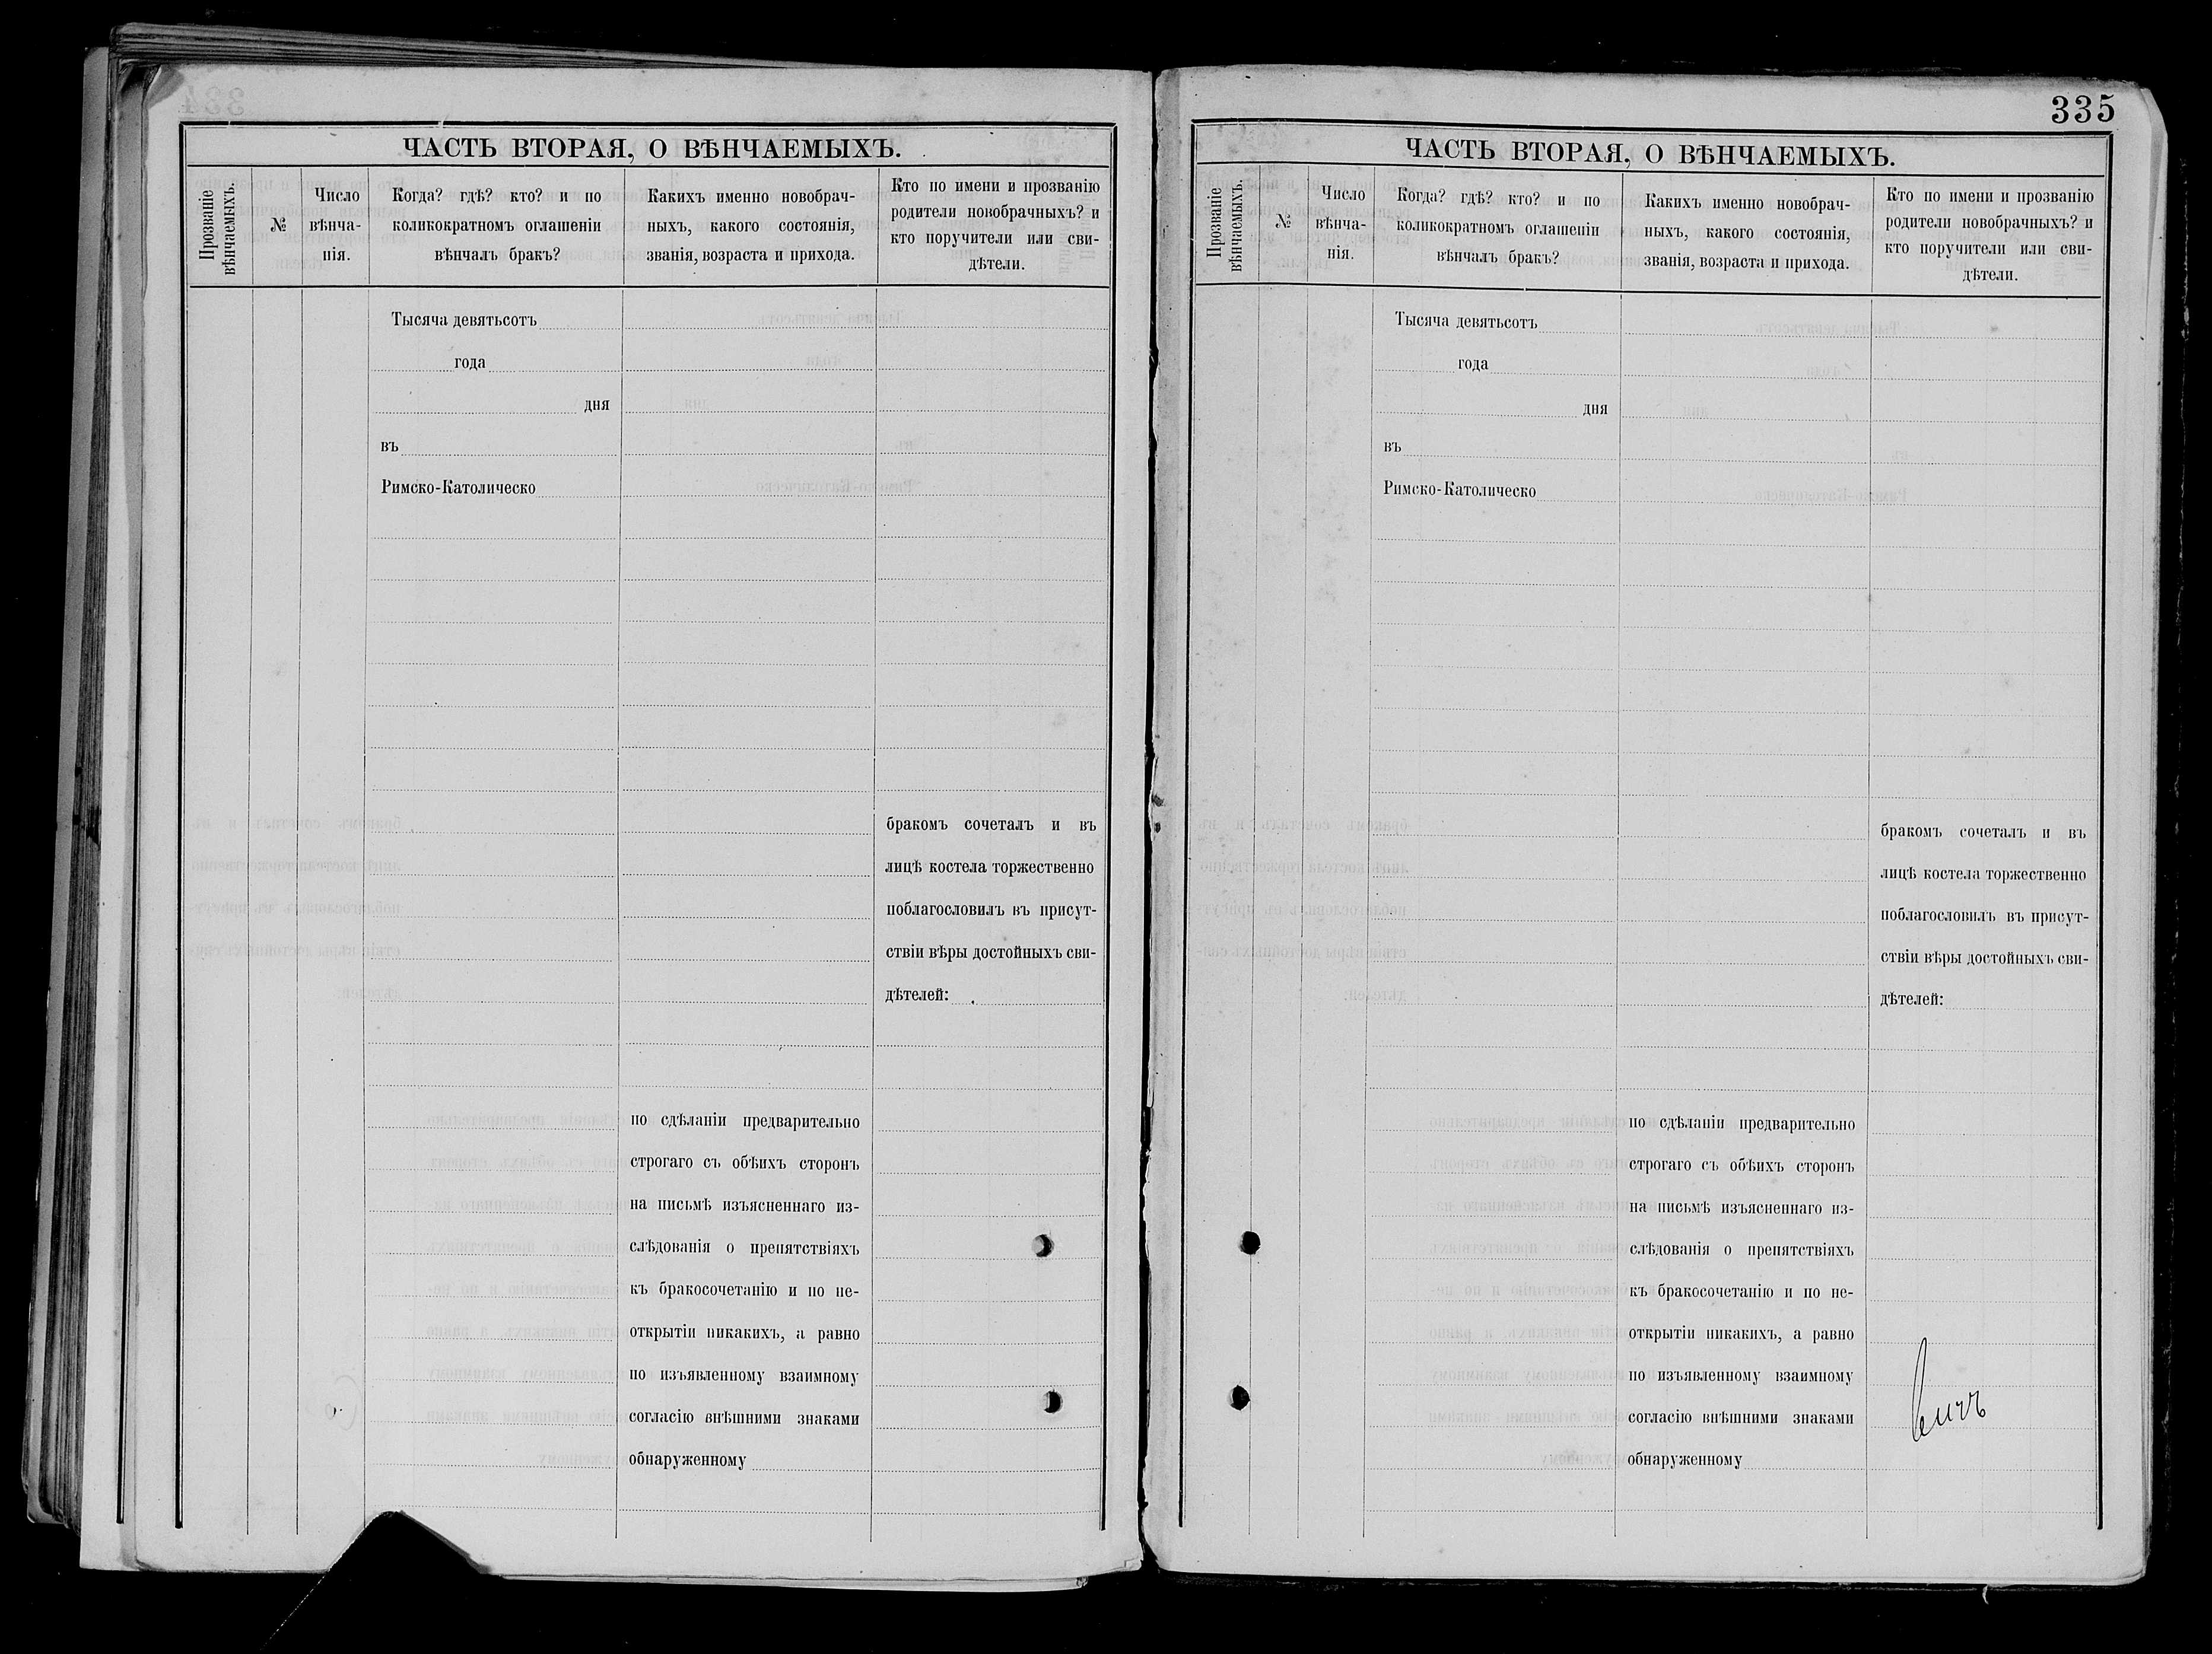 ЧАСТЬ ВТОРАЯ, О ВѢНЧАЕМЫХЪ.
Прозваніе
вѣнчаемыхъ.
№
Число
вѣнча-
нія.
Когда? гдѣ? кто? и по
коликократномъ оглашеніи
вѣнчалъ бракъ?
Какихъ именно новобрач-
ныхъ, какого состоянія,
званія, возраста и прихода.
Кто по имени и прозванію
родители новобрачныхъ? и
кто поручители или сви-
дѣтели.
Тысяча девятьсотъ
года
дня
въ
Римско-Католическо
по сдѣланіи предварительно
строгаго съ обѣихъ сторонъ
на письмѣ изъясненнаго из-
слѣдованія о препятствіяхъ
къ бракосочетанію и по не-
открытіи никакихъ, а равно
по изъявленному взаимному
согласію внѣшними знаками
обнаруженному
бракомъ сочеталъ и въ
лицѣ костела торжественно
поблагословилъ въ присут-
ствіи вѣры достойныхъ сви-
дѣтелей:
335
ЧАСТЬ ВТОРАЯ, О ВѢНЧАЕМЫХЪ.
Прозваніе
вѣнчаемыхъ.
№
Число
вѣнча-
нія.
Когда? гдѣ? кто? и по
коликократномъ оглашеніи
вѣнчалъ бракъ?
Какихъ именно новобрач-
ныхъ, какого состоянія,
званія, возраста и прихода.
Кто по имени и прозванію
родители новобрачныхъ? и
кто поручители или сви-
дѣтели.
Тысяча девятьсотъ
года
дня
въ
Римско-Католическо
по сдѣланіи предварительно
строгаго съ обѣихъ сторонъ
на письмѣ изъясненнаго из-
слѣдованія о препятствіяхъ
къ бракосочетанію и по не-
открытіи никакихъ, а равно
по изъявленному взаимному
согласію внѣшними знаками
обнаруженному
бракомъ сочеталъ и въ
лицѣ костела торжественно
поблагословилъ въ присут-
ствіи вѣры достойныхъ сви-
дѣтелей: